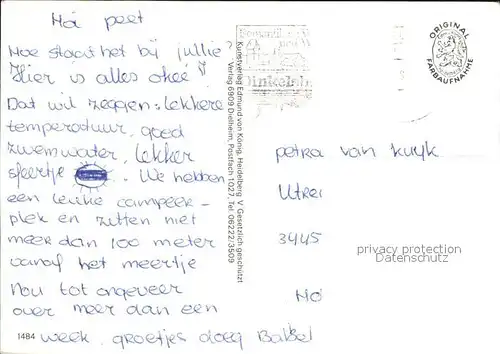 Hoi peet
Hoe staat het bij jullie?
Hier is alles oké!
Dat wil zeggen: lekkere
temperatuur, goed
zwemwater, lekker
sfeertje. We hebben
een leuke campeer-
plek en zitten niet
meer dan 100 meter
vanaf het meertje
Nou tot ongeveer
over meer dan een
week. groetjes doeg
1484
Romantik
Dinkelsb
Kunstverlag Edmund von König, Heidelberg V. Gesetzlich geschützt
Verlag 6909 Dielheim, Postfach 1027, Tel. 06222/3509
ORIGINAL
FARBAUFNAHME
petra van Kuyk
Utre
3445
privacy protection
Datenschutz